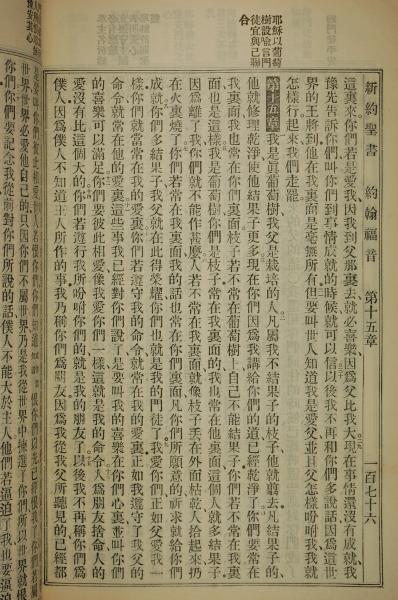 新約聖書　約翰福音　第十五章　一百七十六
耶穌以葡萄
樹設喩言門
徒宜與己聯
合
這裏來你們若是愛我因我到父那裏去就必喜樂因爲父比我大現在事情還沒有成就我
豫先告訴你們叫你們到事情成就的時候就可以信以後我不再和你們多說話因爲這世
界的王將到他在我裏面是毫無所有但要叫世人知道我是愛父並且父怎樣吩咐我我就
怎樣行起來我們走罷
第十五章我是眞葡萄樹我父是栽培的人凡屬我不結果子的枝子他就翦去凡結果子的
他就修理乾淨使他結果子更多現在你們因爲我講給你們的道已經乾淨了你們要常在
我裏面我也常在你們裏面枝子若不常在葡萄樹上自己不能結果子你們若不常在我裏
面也是這樣我是葡萄樹你們是枝子常在我裏面的我也常在他裏面這個人就多結果子
因爲離了我你們就不能作甚麼人若不常在我裏面就像枝子丟在外面枯乾人拾起來扔
在火裏燒了你們若常在我裏面我的話也常在你們裏面凡你們所願意的祈求就給你們
成就你們多結果子我父就在此得榮耀你們也就是我的門徒了我愛你們正如父愛我一
樣你們就當常在我的愛裏你們若遵守我的命令就常在我的愛裏正如我遵守了我父的
命令就常在他的愛裏這些事我已經對你們說了是要叫我的喜樂在你們心裏並叫你們
的喜樂可以滿足你們要彼此相愛像我愛你們一樣這就是我的命令人爲朋友捨命人的
愛沒有比這個大的你們若遵行我所吩咐你們的就是我的朋友了以後我不再稱你們爲
僕人因爲僕人不知道主人所作的事我乃稱你們爲朋友因爲我從我父所聽見的已經都
世界世界必愛他自己的只因你們不屬世界乃是我從世界中揀選了你們所以世界就恨
你們你們要記念我從前對你們所說的話僕人不能大於主人他們若逼迫了我也要逼迫